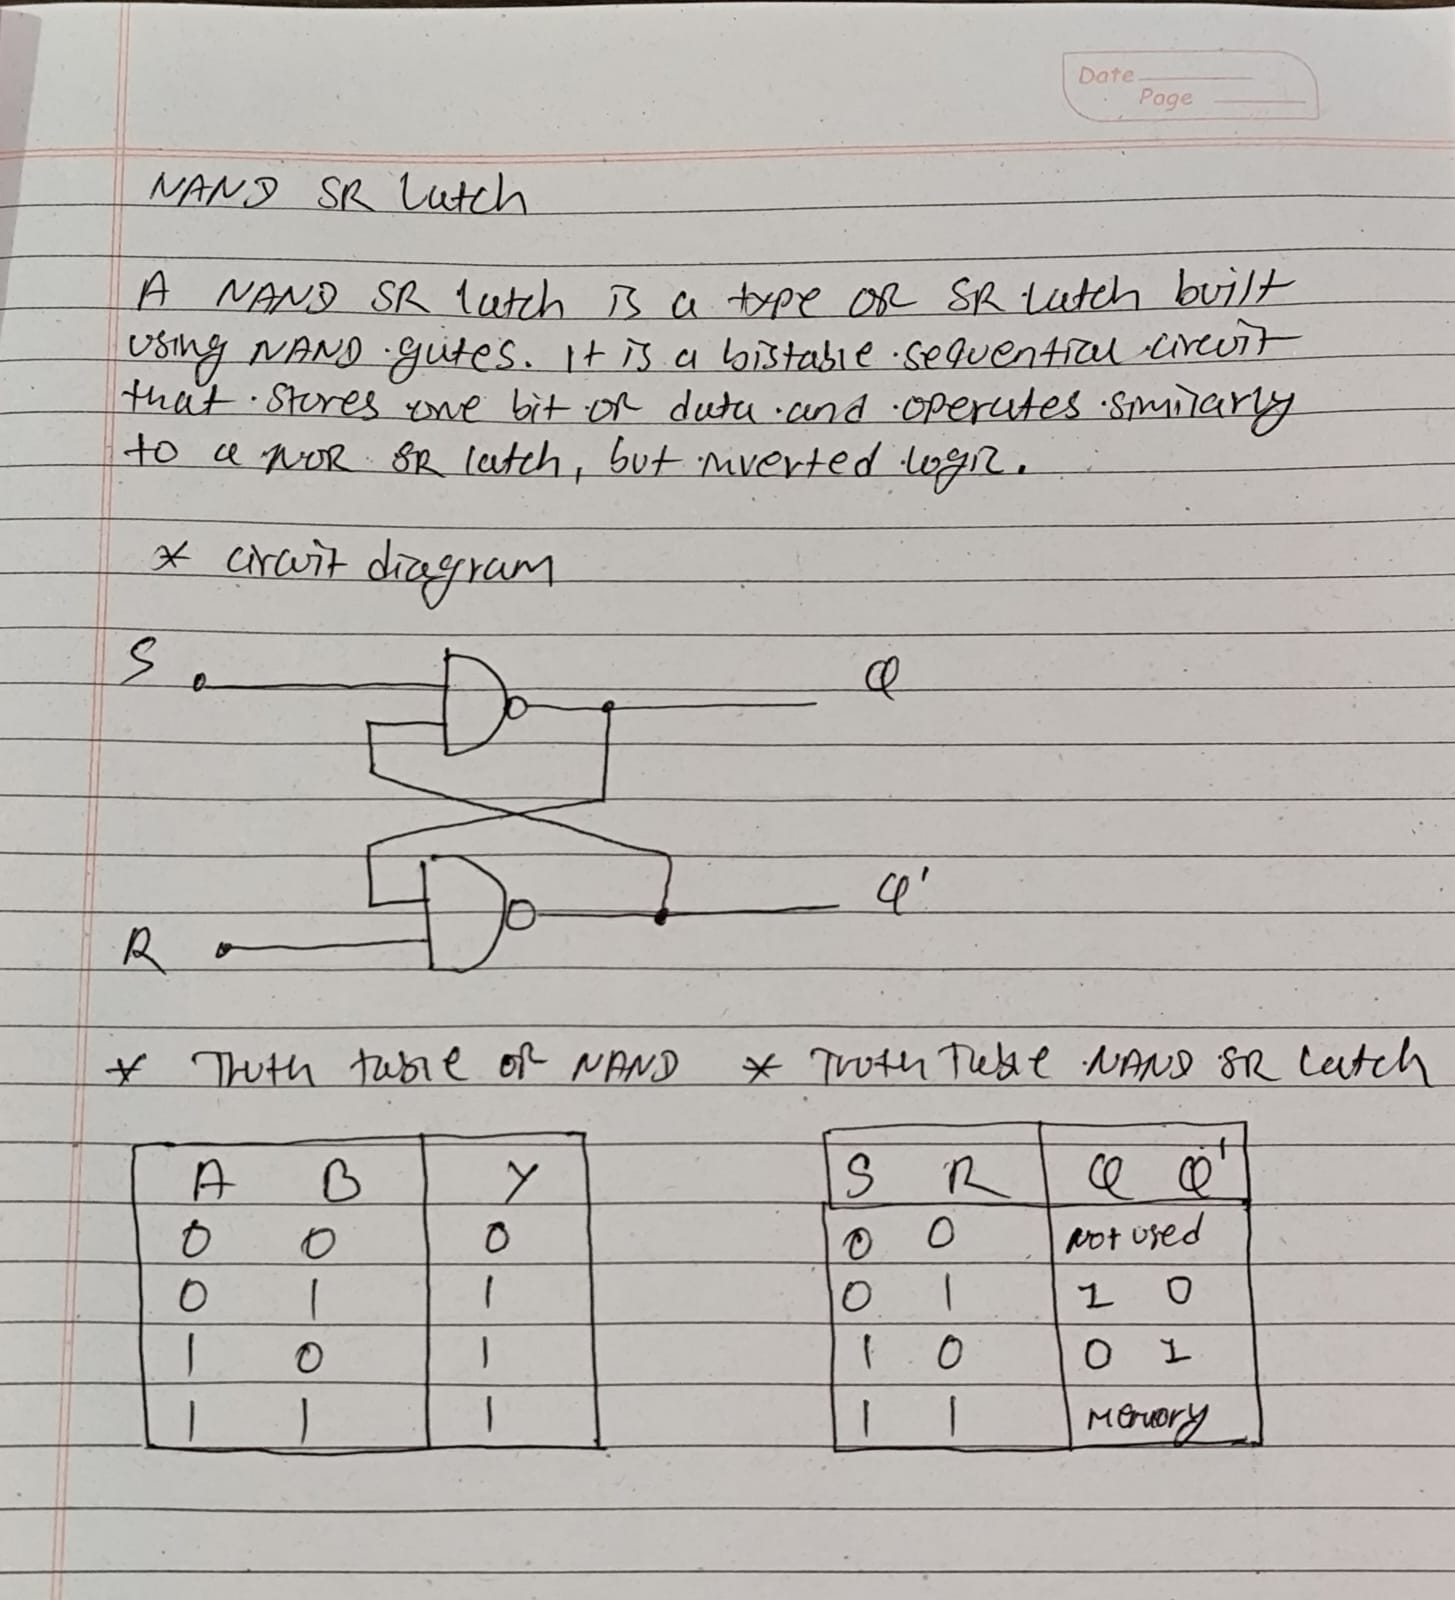 Date
Page
NAND SR latch
A NAND SR latch is a type of SR latch built
using NAND gates. It is a bistable sequential circuit
that stores one bit of data and operates similarly
to a NOR SR latch, but inverted logic.
* circuit diagram
S Q
Q'
R
* Truth table of NAND * Truth Table NAND SR latch
A B Y S R Q Q'
0 0 0 0 0 Not used
0 1 1 0 1 1 0
1 0 1 1 0 0 1
1 1 1 1 1 Memory